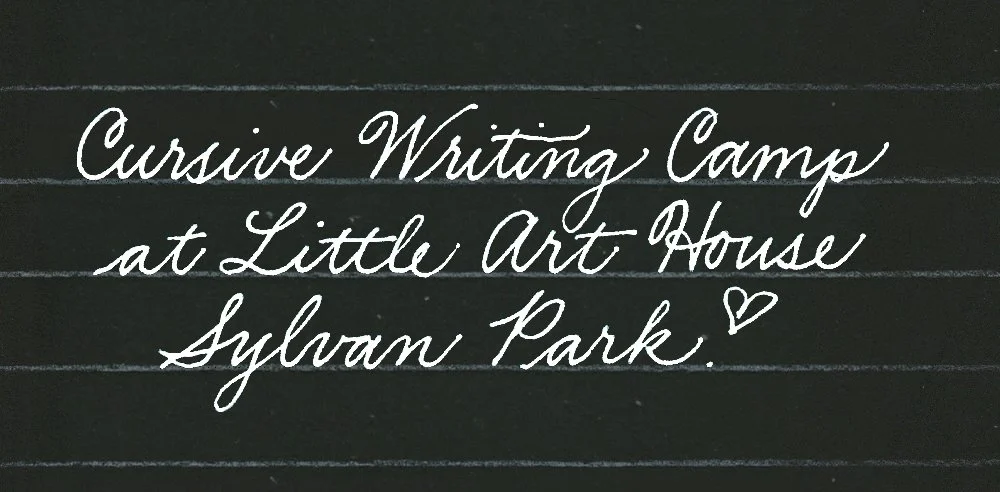 Cursive Writing Camp
at Little Art House
Sylvan Park. ♡